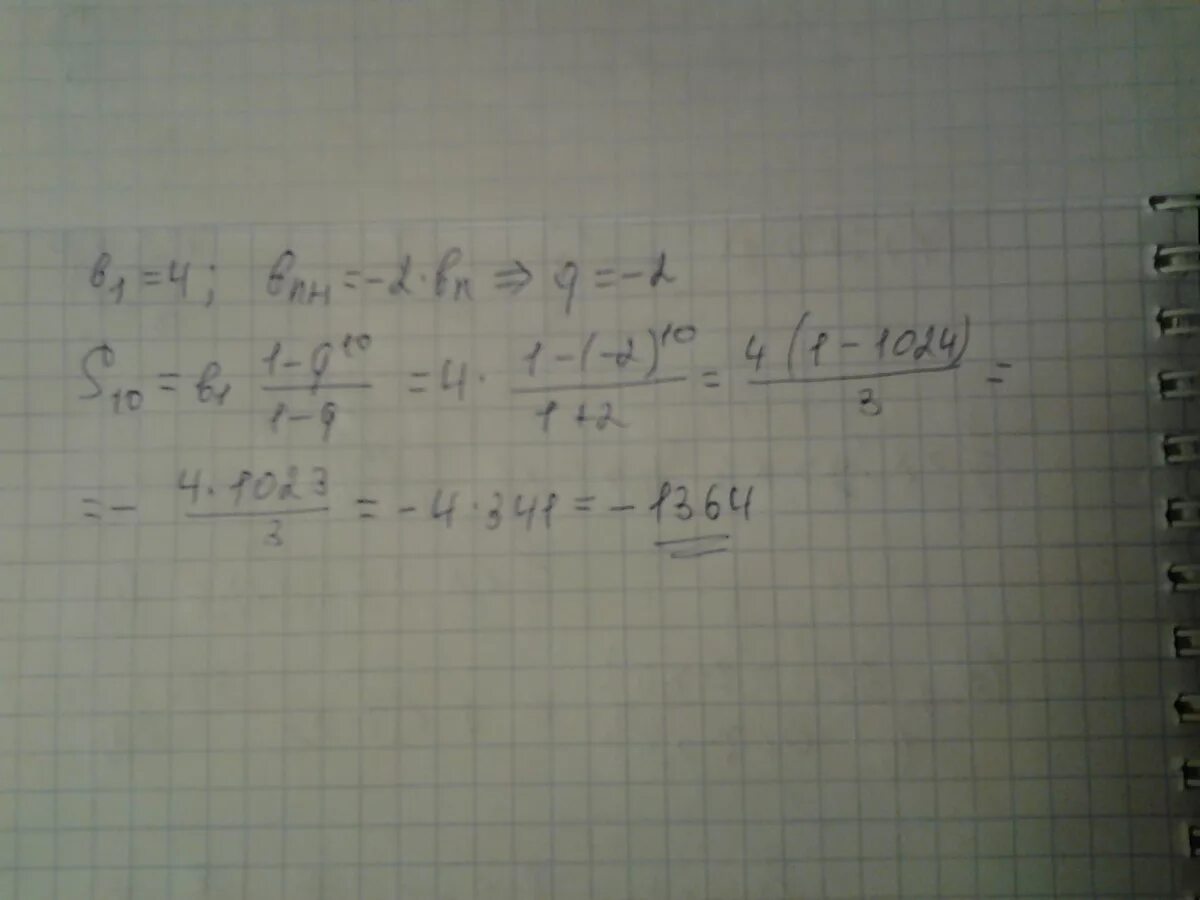 b₁ = 4; bₙ₊₁ = -2 · bₙ ⇒ q = -2
S₁₀ = b₁ (1 - q¹⁰)/(1 - q) = 4 · (1 - (-2)¹⁰)/(1 + 2) = 4(1 - 1024)/3 =
= - (4 · 1023)/3 = -4 · 341 = -1364